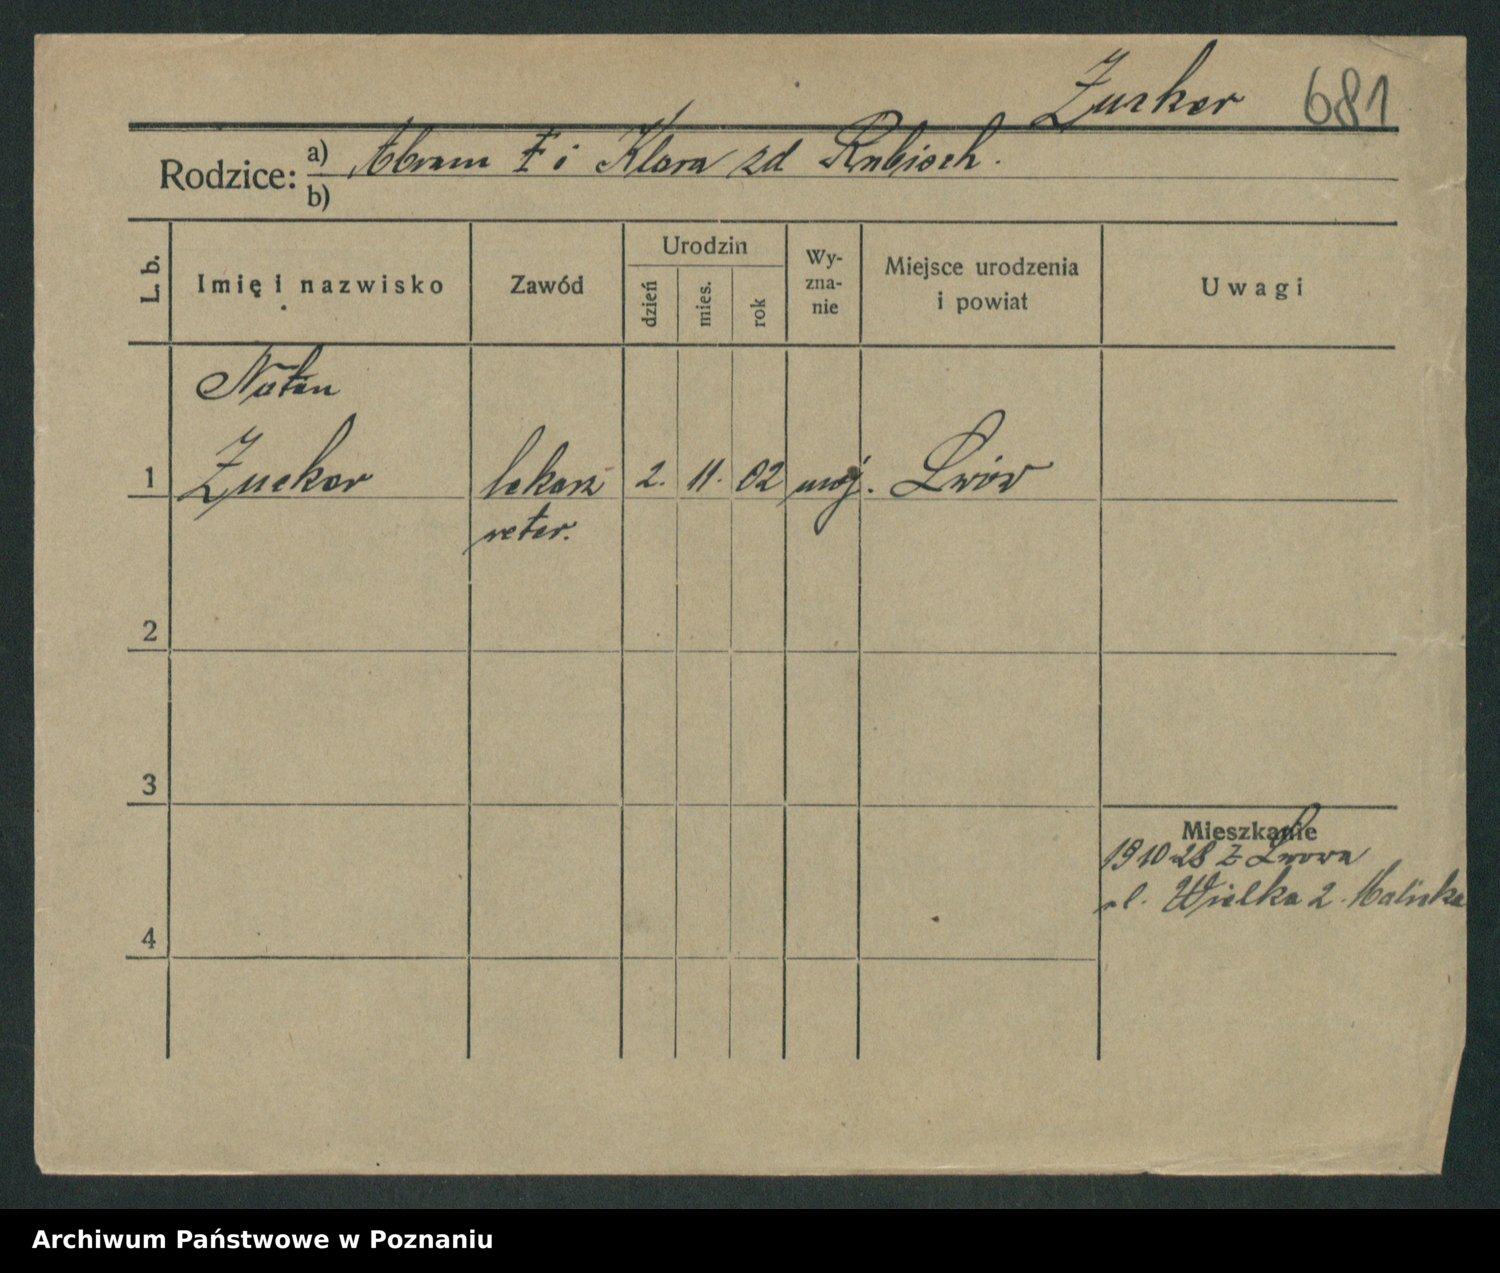 Zucker 681
Rodzice: a) Abram F i Klara zd Rubisch.
b)
L. b. Imię i nazwisko Zawód Urodzin dzień mies. rok Wy-zna-nie Miejsce urodzenia i powiat Uwagi
Natan
1 Zucker lekarz 2. 11. 02 mojż. Lwów
weter.
2
3
Mieszkanie
19 10 28 z Lwowa
ul. Wielka 2.
4
Archiwum Państwowe w Poznaniu